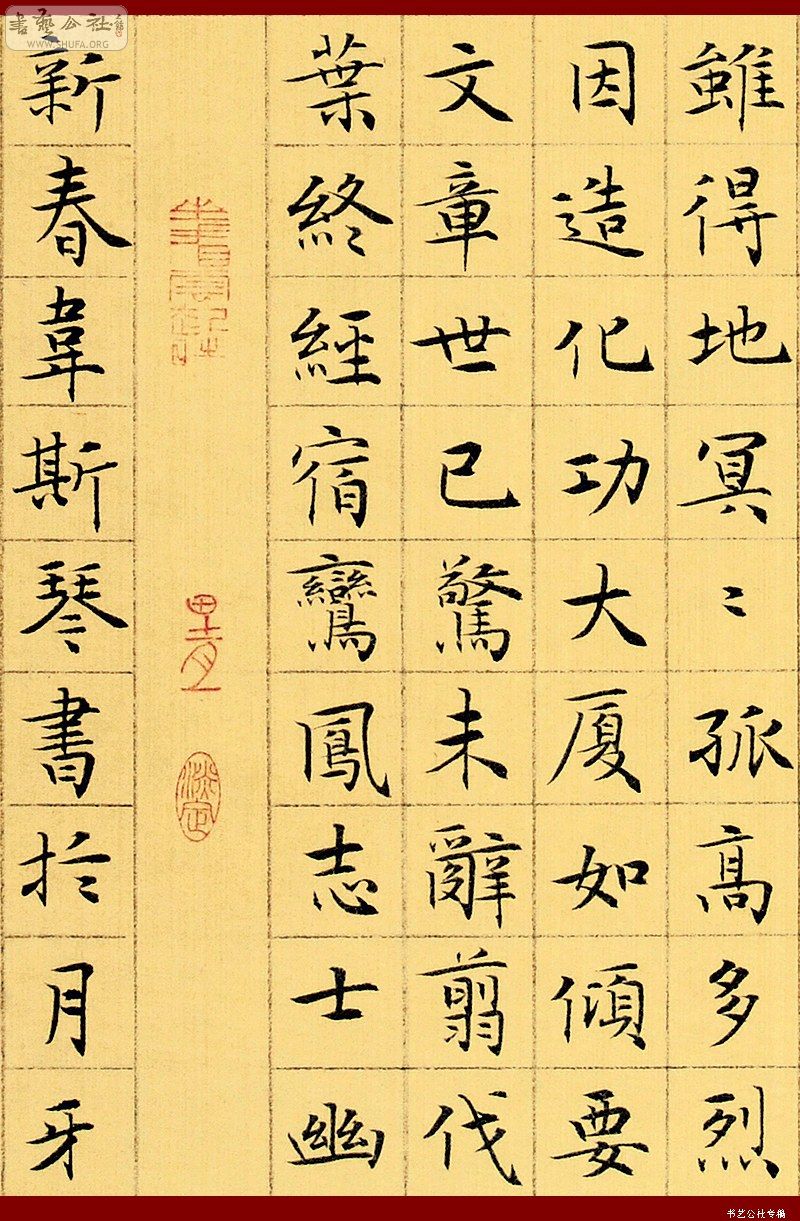 雖得地冥〻孤高多烈
因造化功大厦如傾要
文章世已驚未辭翦伐
葉終經宿鸞鳳志士幽
新春韋斯琴書於月牙
書藝公社
WWW.SHUFA.ORG
书艺公社专稿